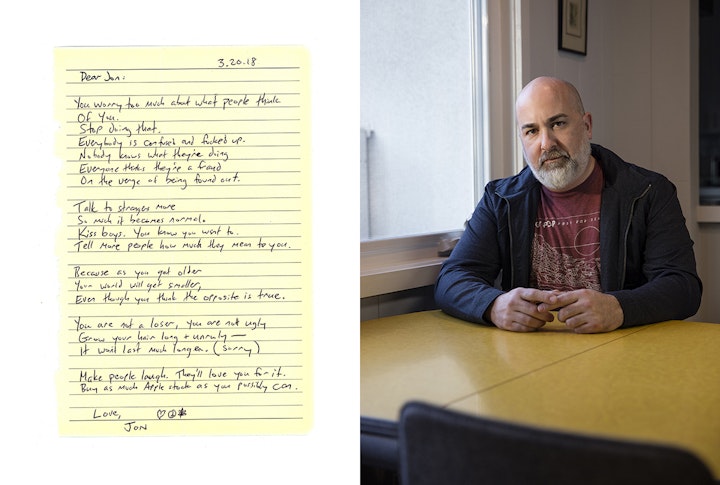 3.20.18
Dear Jon:
You worry too much about what people think
Of You.
Stop doing that.
Everybody is confused and fucked up.
Nobody knows what they're doing
Everyone thinks they're a fraud
On the verge of being found out.
Talk to strangers more
So much it becomes normal.
Kiss boys. You know you want to.
Tell more people how much they mean to you.
Because as you get older
Your world will get smaller,
Even though you think the opposite is true.
You are not a loser, you are not ugly
Grow your hair long + unruly —
It won't last much longer. (Sorry)
Make people laugh. They'll love you for it.
Buy as much Apple stock as you possibly can.
Love,
Jon